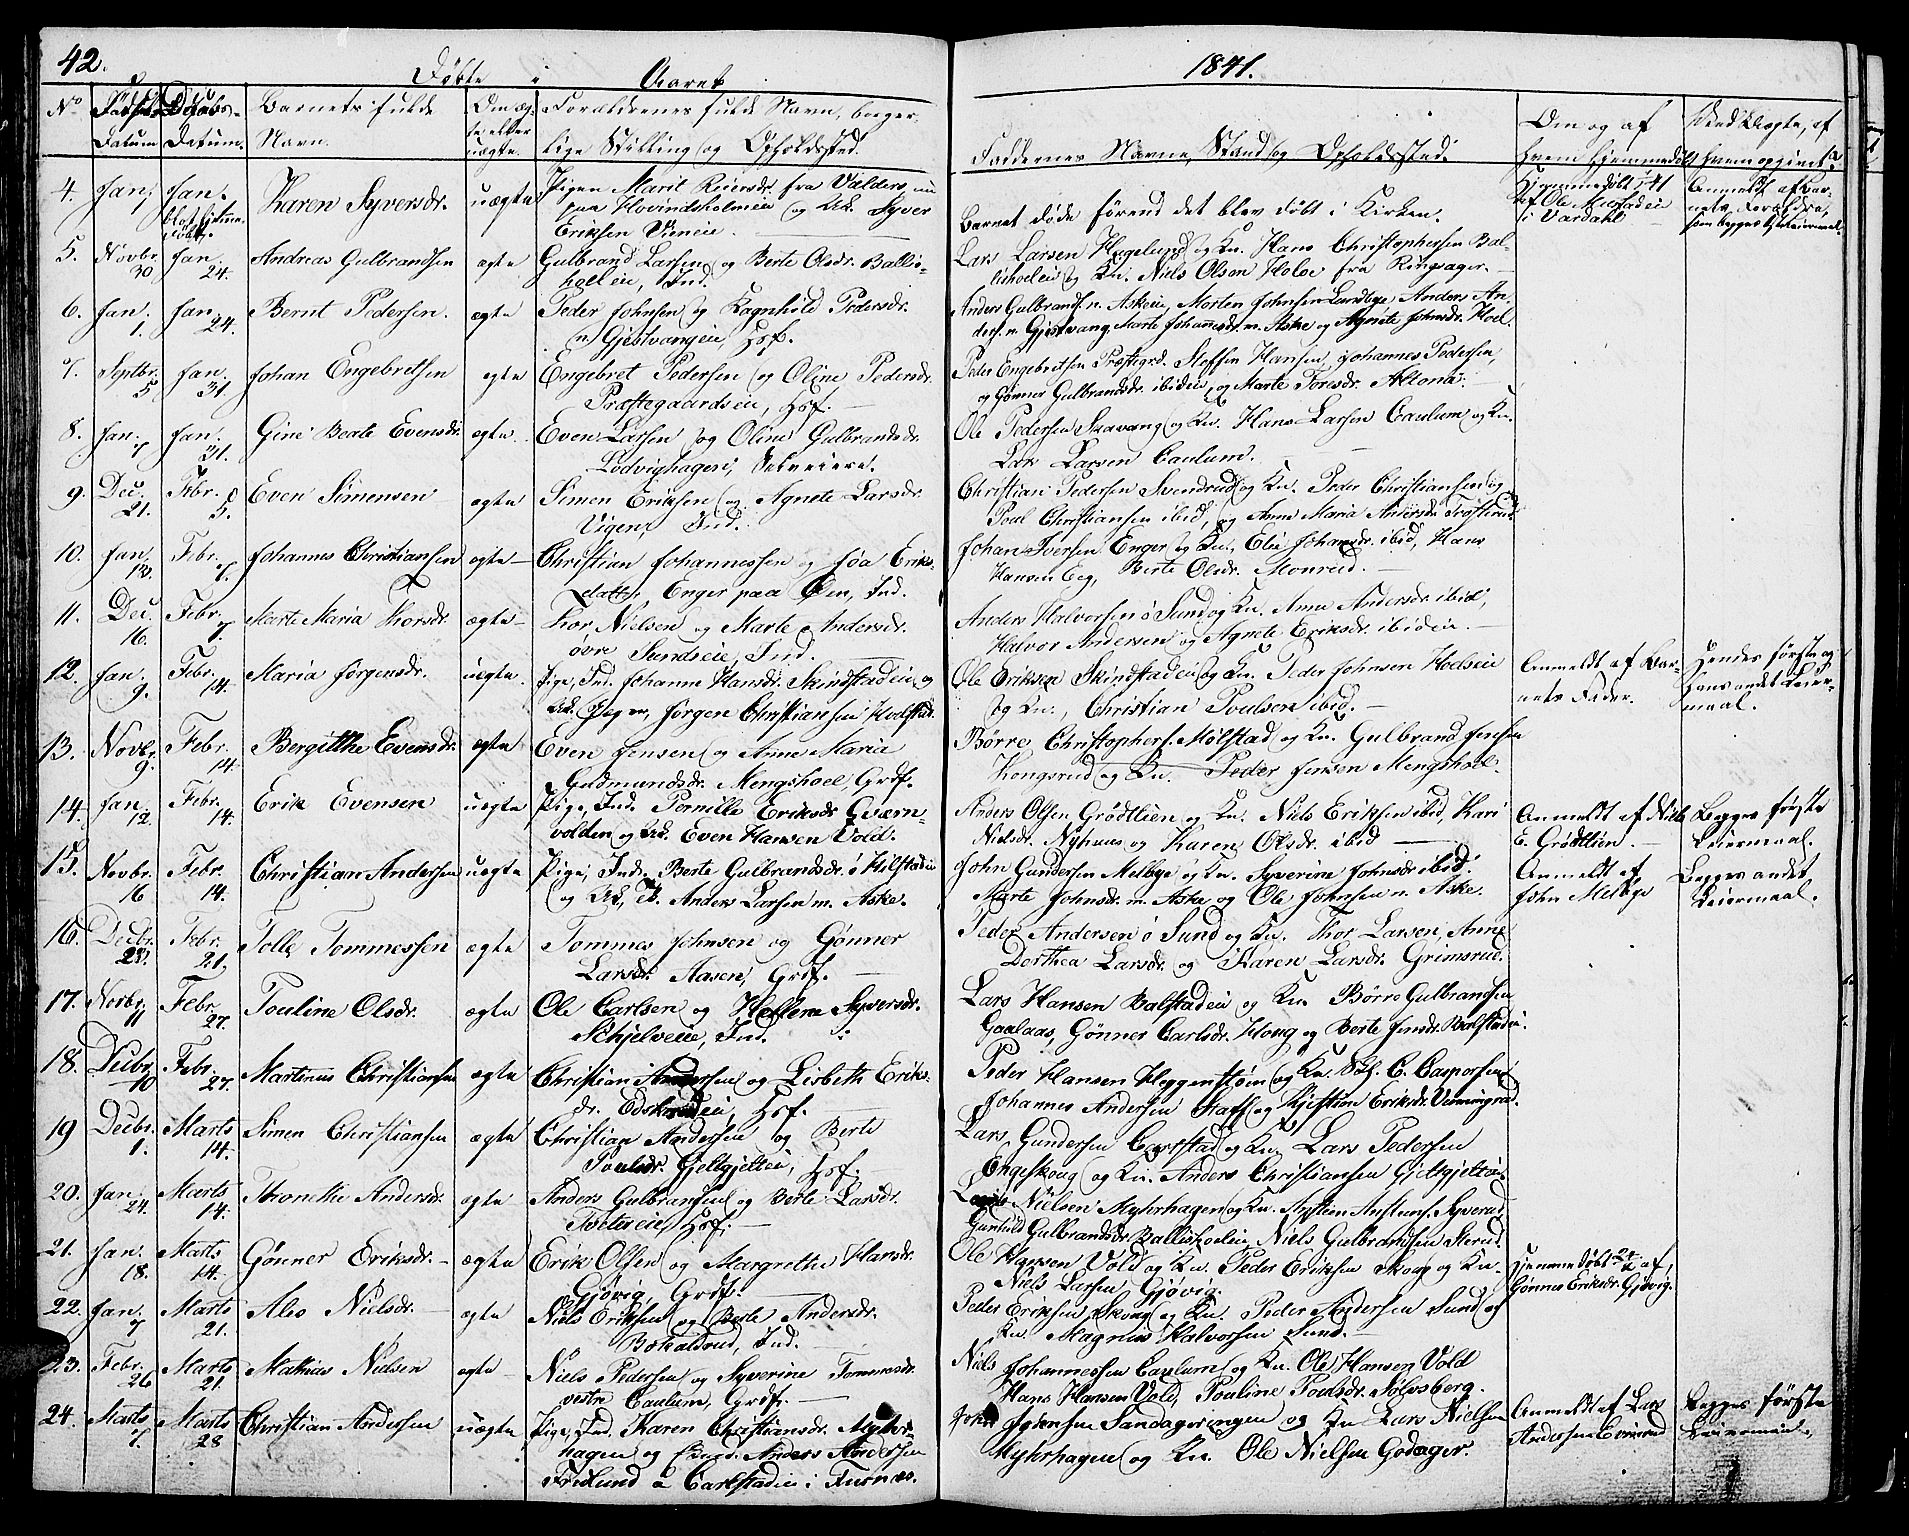 42.
Døbte i Aaret
1841.
No Fødsels Datum Daabs- Datum. Barnets fulde Navn. Om ægte eller uægte. Forældrenes fulde Navn, borger-
lige Stilling og Opholdssted.
Faddernes Navne, Stand og Opholdssted.
Om og af hvem hjemmedøbt
4. Jan. 1 Jan. blot hjemmedøbt. Karen Syversdr. uægte Pigen Marit Reiersdr. fra Valders, nu
paa Hovindsholmeie og Syver
Eriksen Vieneie.
Barnet døde førend det blev døbt i Kirken.
Hjemmedøbt af Ole i Vardahl
Anmeldt af Barnets Forældre,
5. Novbr. 30 Jan. 24. Andreas Gulbrandsen ægte Gulbrand Larsen og Berte Olsdr. Ballis-
hoelleie, Ind.
Lars Larsen Hegelund og Kn. Hans Christophersen Bal-
lishoeleie og Kn. Niels Olsen Holoe fra Ringsager.
6. Jan. 1. Jan. 24. Bernt Pedersen. ægte Peder Johnsen og Ragnhild Pedersdr.
n. Gjestvangeie, Hsf.
Anders Gulbrands. n. Askeie, Morten Johnsen Landlye Anders An-
ders. n. Gjestvang, Marte Johannesdr. m. Aske og Agnete Johnsdr. Hoel.
7. Septbr. 5 Jan. 31. Johan Engebretsen ægte Engebret Pedersen og Oline Pedersdr.
Præstegaardseie, Hsf.
Peder Engebretsen Præstegrd. Steffen Hansen, Johannes Pedersen,
og Gønner Gulbrandsdr. ibideie og Marte Toresdr. Altona.
8. Jan. 7 Jan. 31. Gine Beate Evensdr. ægte. Even Larsen og Oline Gulbrandsdr.
Lodvighagen, Selveiere.
Ole Pedersen Skavang og Kn. Hans Larsen Caulum og Kn.
Lars Larsen Caulum.
9. Dec. 21. Febr. 5. Even Simensen ægte Simen Eriksen og Agnete Larsdr.
Vigen, Ind.
Christian Pedersen Svendrud og Kn. Peder Christiansen og
Poul Christiansen ibid, og Anne Maria Andersdr Frøslerud
10. Jan. 13. Febr. 7. Johannes Christiansen ægte Christian Johannessen og Joa Eriks-
datter, Enger paa Øen, Ind.
Johan Iversen Enger og Kn. Elie Johansdr. ibid, Hans
Hansen Eeg, Berte Olsdr. Monrud.
11. Dec. 16. Febr. 7. Marte Maria Thorsdr. ægte Thor Nielsen og Marte Andersdr.
øvre Sundseie, Ind.
Anders Halvorsen ø Sund og Kn. Anne Andersdr ibid,
Halvor Andersen og Agnete Eriksdr. ibideie.
12. Jan. 9. Febr. 14. Maria Jørgensdr. uægte. Pige, Ind. Johanne Hansdr. Skindstadeie og
Jørgen Christiansen Hoelstad.
Ole Eriksen Skindstadeie og Kn. Peder Johnsen Hoelseie
og Kn., Christian Poulsen ibid.
Anmeldt af Bar-
nets Fader.
Hendes første og
Hans andet Leier-
maal.
13. Novbr. 9. Febr. 14. Bergitthe Evensdr. ægte Even Jensen og Anne Maria
Gudmundsdr. Mengshoel, Grdf.
Børre Christophers. Mølstad og Kn. Gulbrand Jensen
Kongsrud og Kn. Peder Jensen Mengshoel.
14. Jan. 12. Febr. 14. Erik Evensen uægte Pige, Ind. Pernille Eriksdr Gværn-
volden og Even Hansen Vold.
Anders Olsen Grødtlien og Kn. Niels Eriksen ibid, Kari
Nielsdr. Nyhuus og Karen Olsdr. ibid
Anmeldt af Niels
E. Grødtlien.
Begges første
Leiermaal.
15. Novbr. 16 Febr. 14. Christian Andersen uægte Pige, Ind. Berte Gulbrandsdr. ø Hilstadeie
og Anders Larsen m. Aske.
John Gundersen Melbye og Kn. Syverine Johnsdr ibid.
Marte Johnsdr. m. Aske og Ole Johnsen n. Aske.
Anmeldt af
John Melbye
Begges andet
Leiermaal.
16. Decbr. 28. Febr. 21. Pelle Tommessen ægte Tommes Johnsen og Gønner
Larsdr. Aasen, Grdf.
Peder Andersen ø Sund og Kn. Thor Larsen, Anne
Dorthea Larsdr. og Karen Larsdr. Grimsrud.
17. Novbr. 11 Febr. 27. Pouline Olsdr. ægte Ole Carlsen og Hellene Syversdr.
Skjelveie, Ind.
Lars Hansen Balstadeie og Kn. Børre Gulbrandsen
Gaalaas, Gønner Carlsdr. Houg og Berte Jensdr. Balstadeie
18. Decbr. 10 Febr. 27. Martinus Christiansen ægte Christian Andersen og Lisbeth Eriks-
dr. Hsf.
Peder Hansen Heggenstøen og Kn. C. Caspersen
Johannes Andersen Staff og Kjestian Eriksdr.
19 Decbr. 1. Marts 14. Simen Christiansen ægte Christian Andersen og Berte
Poulsdr. Gjeltgjelteie, Hsf.
Lars Gundersen og Kn. Lars Pedersen
Engeskoug og Kn. Anders Christiansen Gjeltgjelteie.
20. Jan. 24. Marts 14. Thronethe Andersdr. ægte Anders Gulbransen og Berte Larsdr.
Tveteneie, Hsf.
Nielsen Myhrhagen og Kn. Syverud,
Gunhild Gulbrandsdr. Ballishoeleie, Niels Gulbrandsen Sterud.
21. Jan. 18. Marts 14. Gønner Eriksdr. ægte Erik Olsen og Margrethe Hansdr.
Gjøvig, Grdf.
Ole Hansen Vold og Kn. Peder Eriksen Skoug og Kn.
Niels Larsen Gjøvig.
Hjemmedøbt 24 af
Gønner Eriksdr. Gjøvig.
22. Jan. 7 Marts 21. Aleo Nielsdr. ægte Niels Eriksen og Berte Andersdr.
Bokalsrud, Ind.
Peder Eriksen Skoug og Kn. Peder Andersen Sund og
Kn. Magnus Halvorsen Sund.
23. Febr. 26 Marts 21. Mathias Nielsen ægte Niels Pedersen og Syverine Tommesdr.
vestre Caulum, Grdf.
Niels Johannessen Caulum og Kn. Ole Hansen Vold
Hans Hansen Vold, Pouline Poulsdr. Sølvsberg.
24. Marts 7. Marts 28 Christian Andersen uægte Pige, Ind. Karen Christiansdr. Myhr-
hagen og Anders Andersen
Fridlund a Carlstadeie i Furnæs.
John Johnsen Sandageringen og Kn Lars Nielsen
Myhrhagen og Kn. Ole Nielsen Godager.
Anmeldt af Lars
Andersen Evinrud
Begges første
Leiermaal.